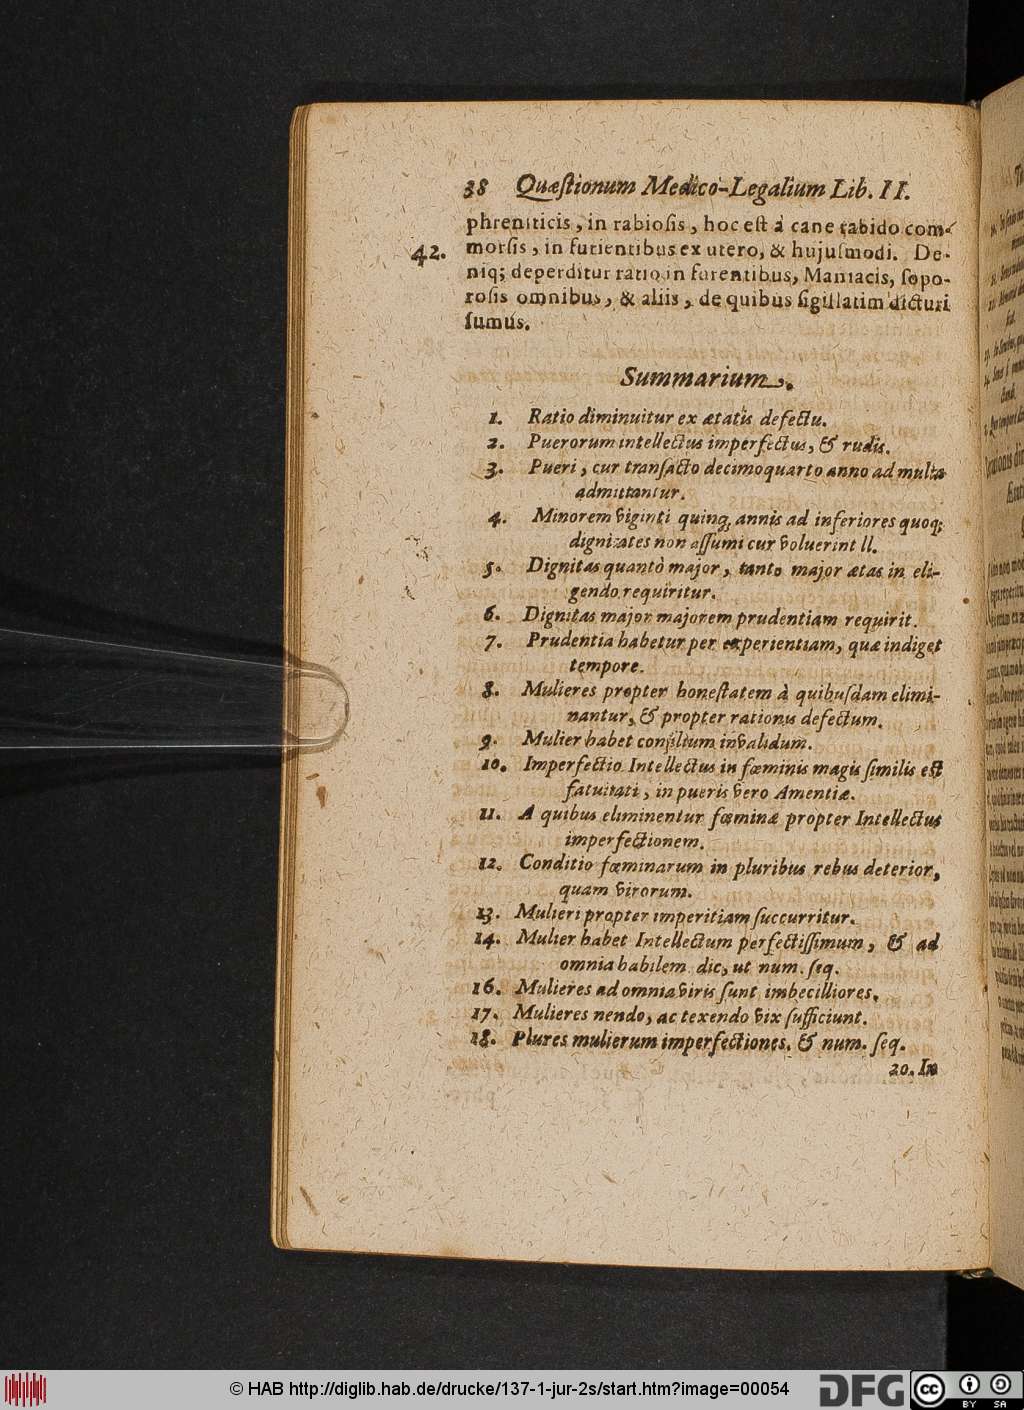 38 Quæſtionum Medico-Legalium Lib. II.
phreniticis, in rabioſis, hoc eſt à cane rabido com-
42. morſis, in furientibus ex utero, & hujuſmodi. De-
niq; deperditur ratio in furentibus, Maniacis, ſopo-
roſis omnibus, & aliis, de quibus ſigillatim dicturi
ſumus.
Summarium.
1. Ratio diminuitur ex ætatis defectu.
2. Puerorum intellectus imperfectus, & rudis.
3. Pueri, cur tranſacto decimoquarto anno ad multa
admittantur.
4. Minorem viginti quinq; annis ad inferiores quoq;
dignitates non aſſumi cur voluerint ll.
5. Dignitas quantò major, tanto major ætas in eli-
gendo requiritur.
6. Dignitas major majorem prudentiam requirit.
7. Prudentia habetur per experientiam, quæ indiget
tempore.
8. Mulieres propter honeſtatem à quibuſdam elimi-
nantur, & propter rationis defectum.
9. Mulier habet conſilium invalidum.
10. Imperfectio Intellectus in fœminis magis ſimilis eſt
fatuitati, in pueris vero Amentiæ.
11. A quibus eliminentur fœminæ propter Intellectus
imperfectionem.
12. Conditio fœminarum in pluribus rebus deterior,
quam virorum.
13. Mulieri propter imperitiam ſuccurritur.
14. Mulier habet Intellectum perfectiſſimum, & ad
omnia habilem dic, ut num. ſeq.
16. Mulieres ad omnia viris ſunt imbecilliores.
17. Mulieres nendo, ac texendo vix ſufficiunt.
18. Plures mulierum imperfectiones. & num. ſeq.
20. In
© HAB http://diglib.hab.de/drucke/137-1-jur-2s/start.htm?image=00054
DFG
cc BY SA